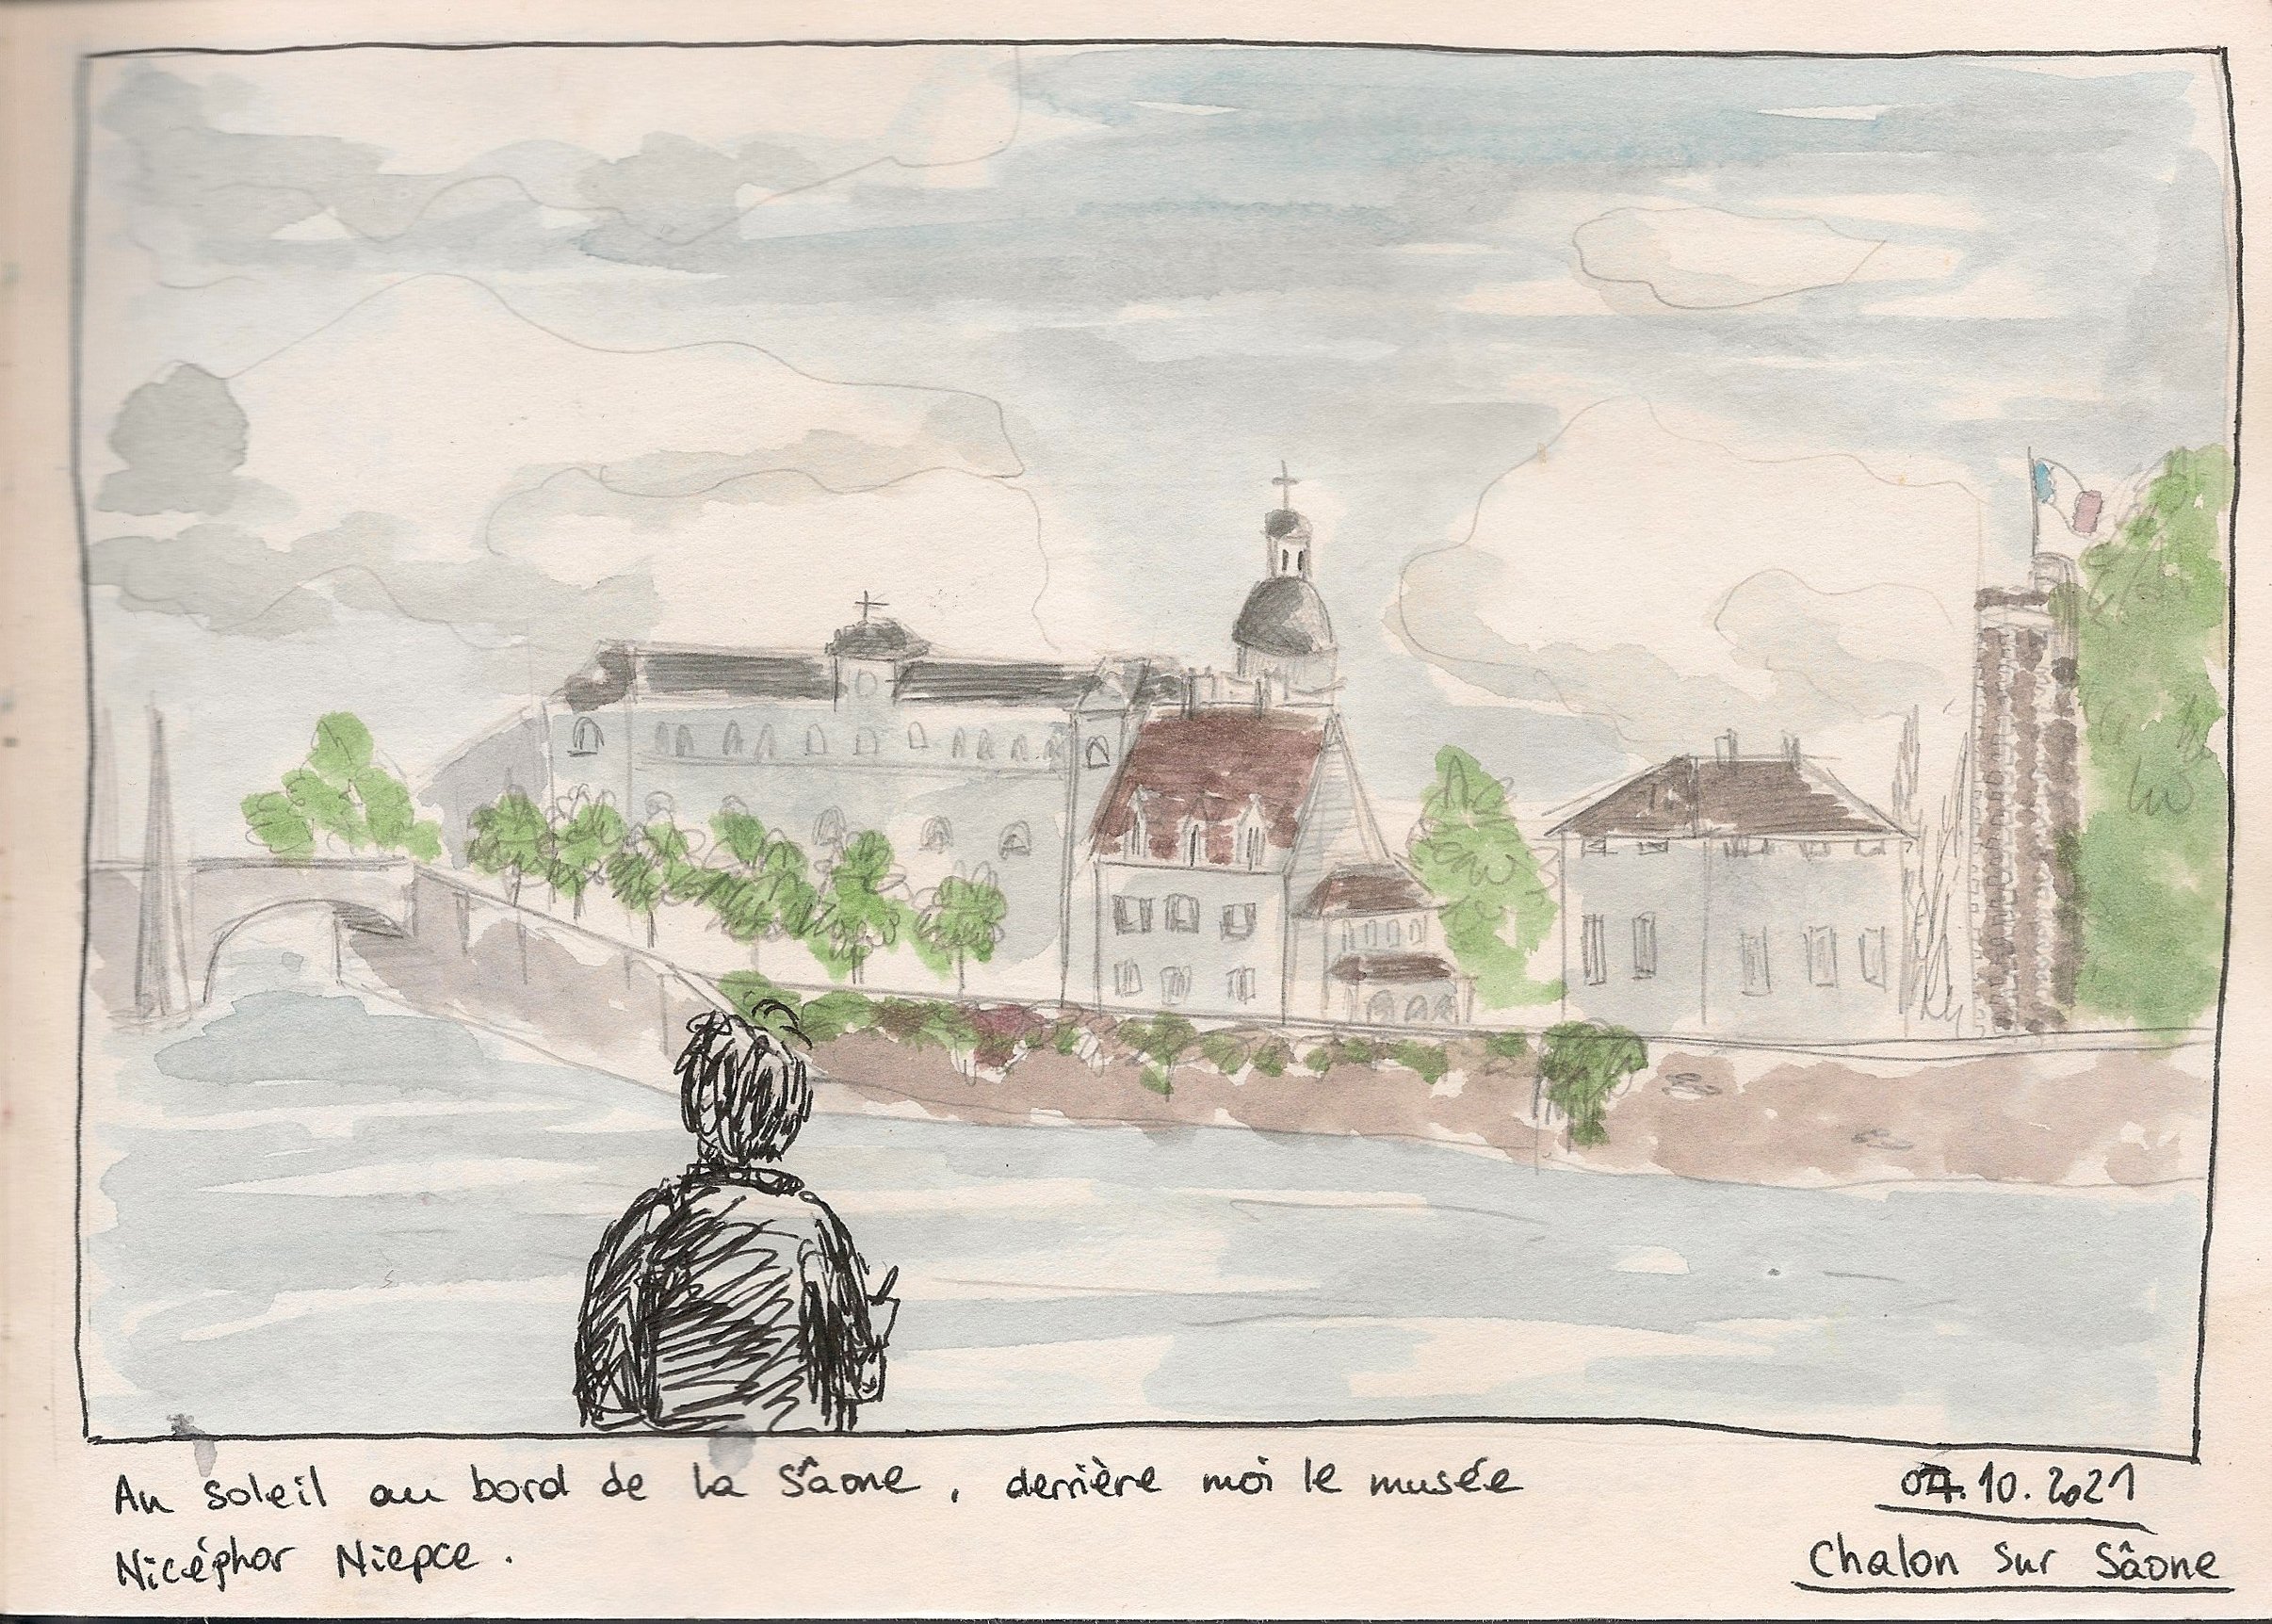 Au soleil au bord de la Sâone, derrière moi le musée
Nicéphor Niepce.
10.2021
Chalon sur Sâone